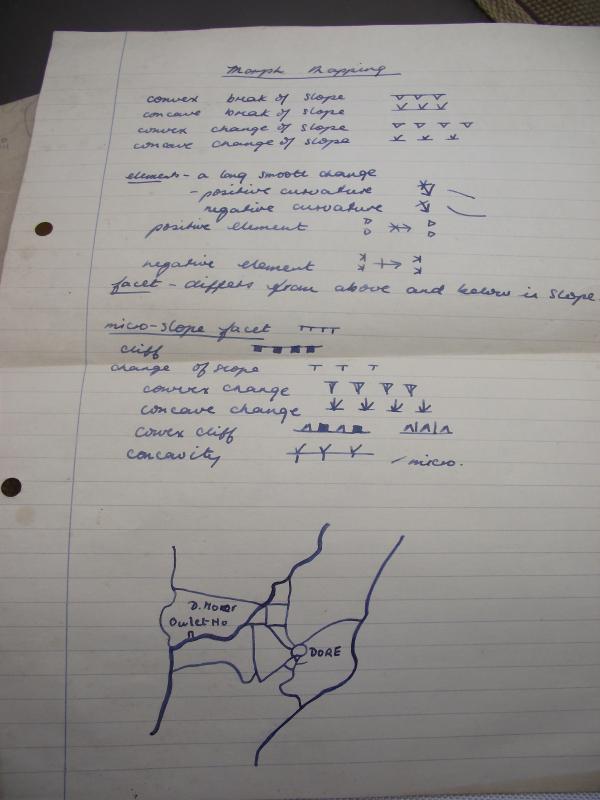 Morph Mapping
convex break of slope
concave break of slope
convex change of slope
concave change of slope
element - a long smooth change
- positive curvature
negative curvature
positive element
negative element
facet - differs from above and below in slope.
micro-slope facet
cliff
change of slope
convex change
concave change
covex cliff
concavity
micro.
D. Moor
Owlet-Ho
DORE